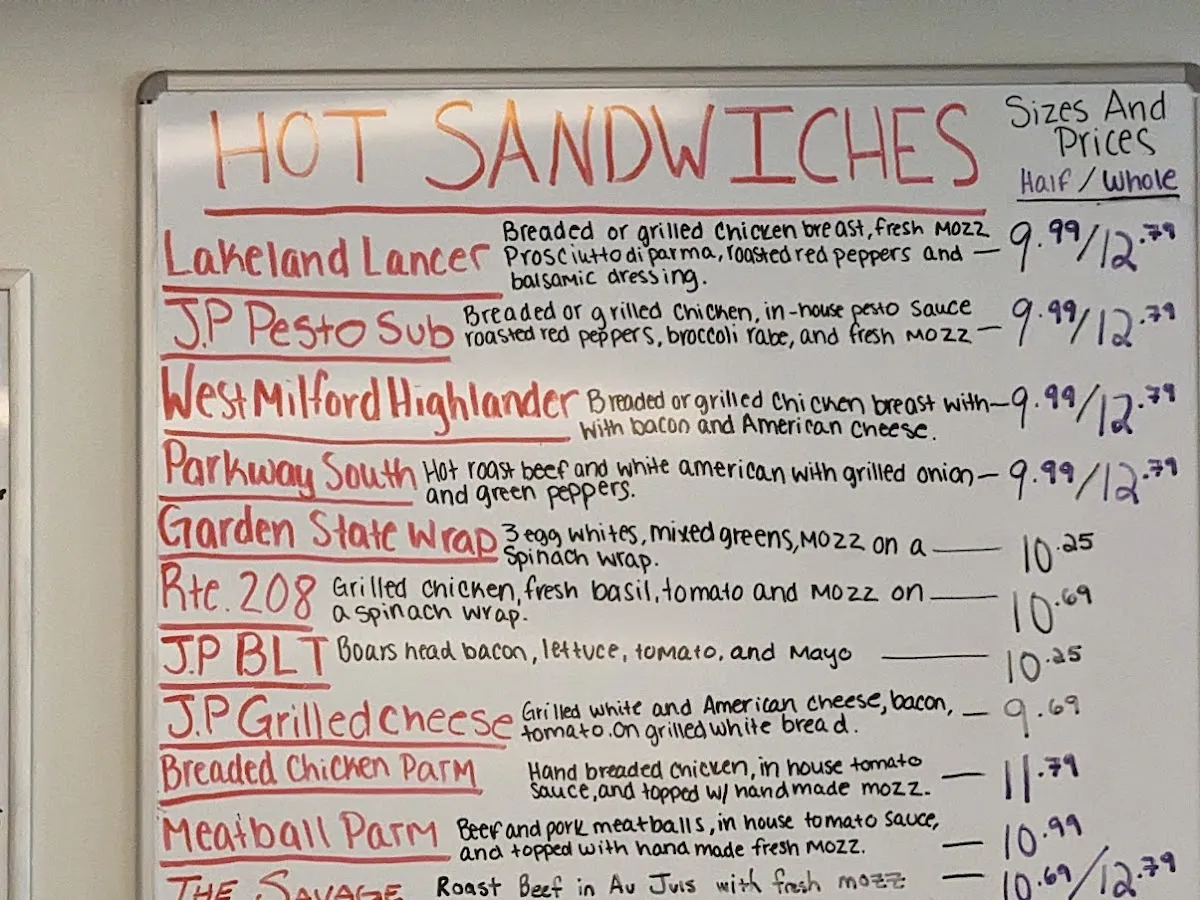 HOT SANDWICHES
Sizes And
Prices
Half / Whole
Lakeland Lancer Breaded or grilled chicken breast, fresh mozz
Prosciutto di parma, roasted red peppers and — 9.99/12.79
balsamic dressing.
J.P Pesto Sub Breaded or grilled chicken, in-house pesto sauce
roasted red peppers, broccoli rabe, and fresh mozz — 9.99/12.79
West Milford Highlander Breaded or grilled chicken breast with — 9.99/12.79
with bacon and American cheese.
Parkway South Hot roast beef and white american with grilled onion — 9.99/12.79
and green peppers.
Garden State Wrap 3 egg whites, mixed greens, mozz on a — 10.25
spinach wrap.
Rte. 208 Grilled chicken, fresh basil, tomato and mozz on — 10.69
a spinach wrap.
J.P BLT Boars head bacon, lettuce, tomato, and mayo — 10.25
J.P Grilled cheese Grilled white and American cheese, bacon, — 9.69
tomato. on grilled white bread.
Breaded Chicken Parm Hand breaded chicken, in house tomato — 11.79
sauce, and topped w/ handmade mozz.
Meatball Parm Beef and pork meatballs, in house tomato sauce, — 10.99
and topped with hand made fresh mozz.
THE SAVAGE Roast Beef in Au Juis with fresh mozz — 10.69/12.79